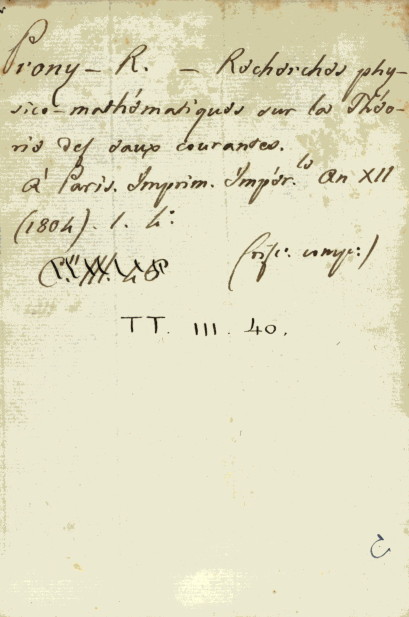 Prony - R. - Recherches phy-
sico-mathématiques sur la Théo-
rie des eaux courantes.
À Paris. Imprim. Impér.le An XII
(1804). 1. 4°
TT. III. 40.